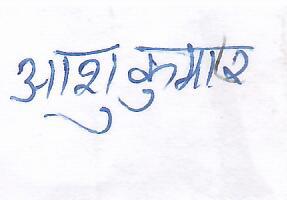 आशु कुमार